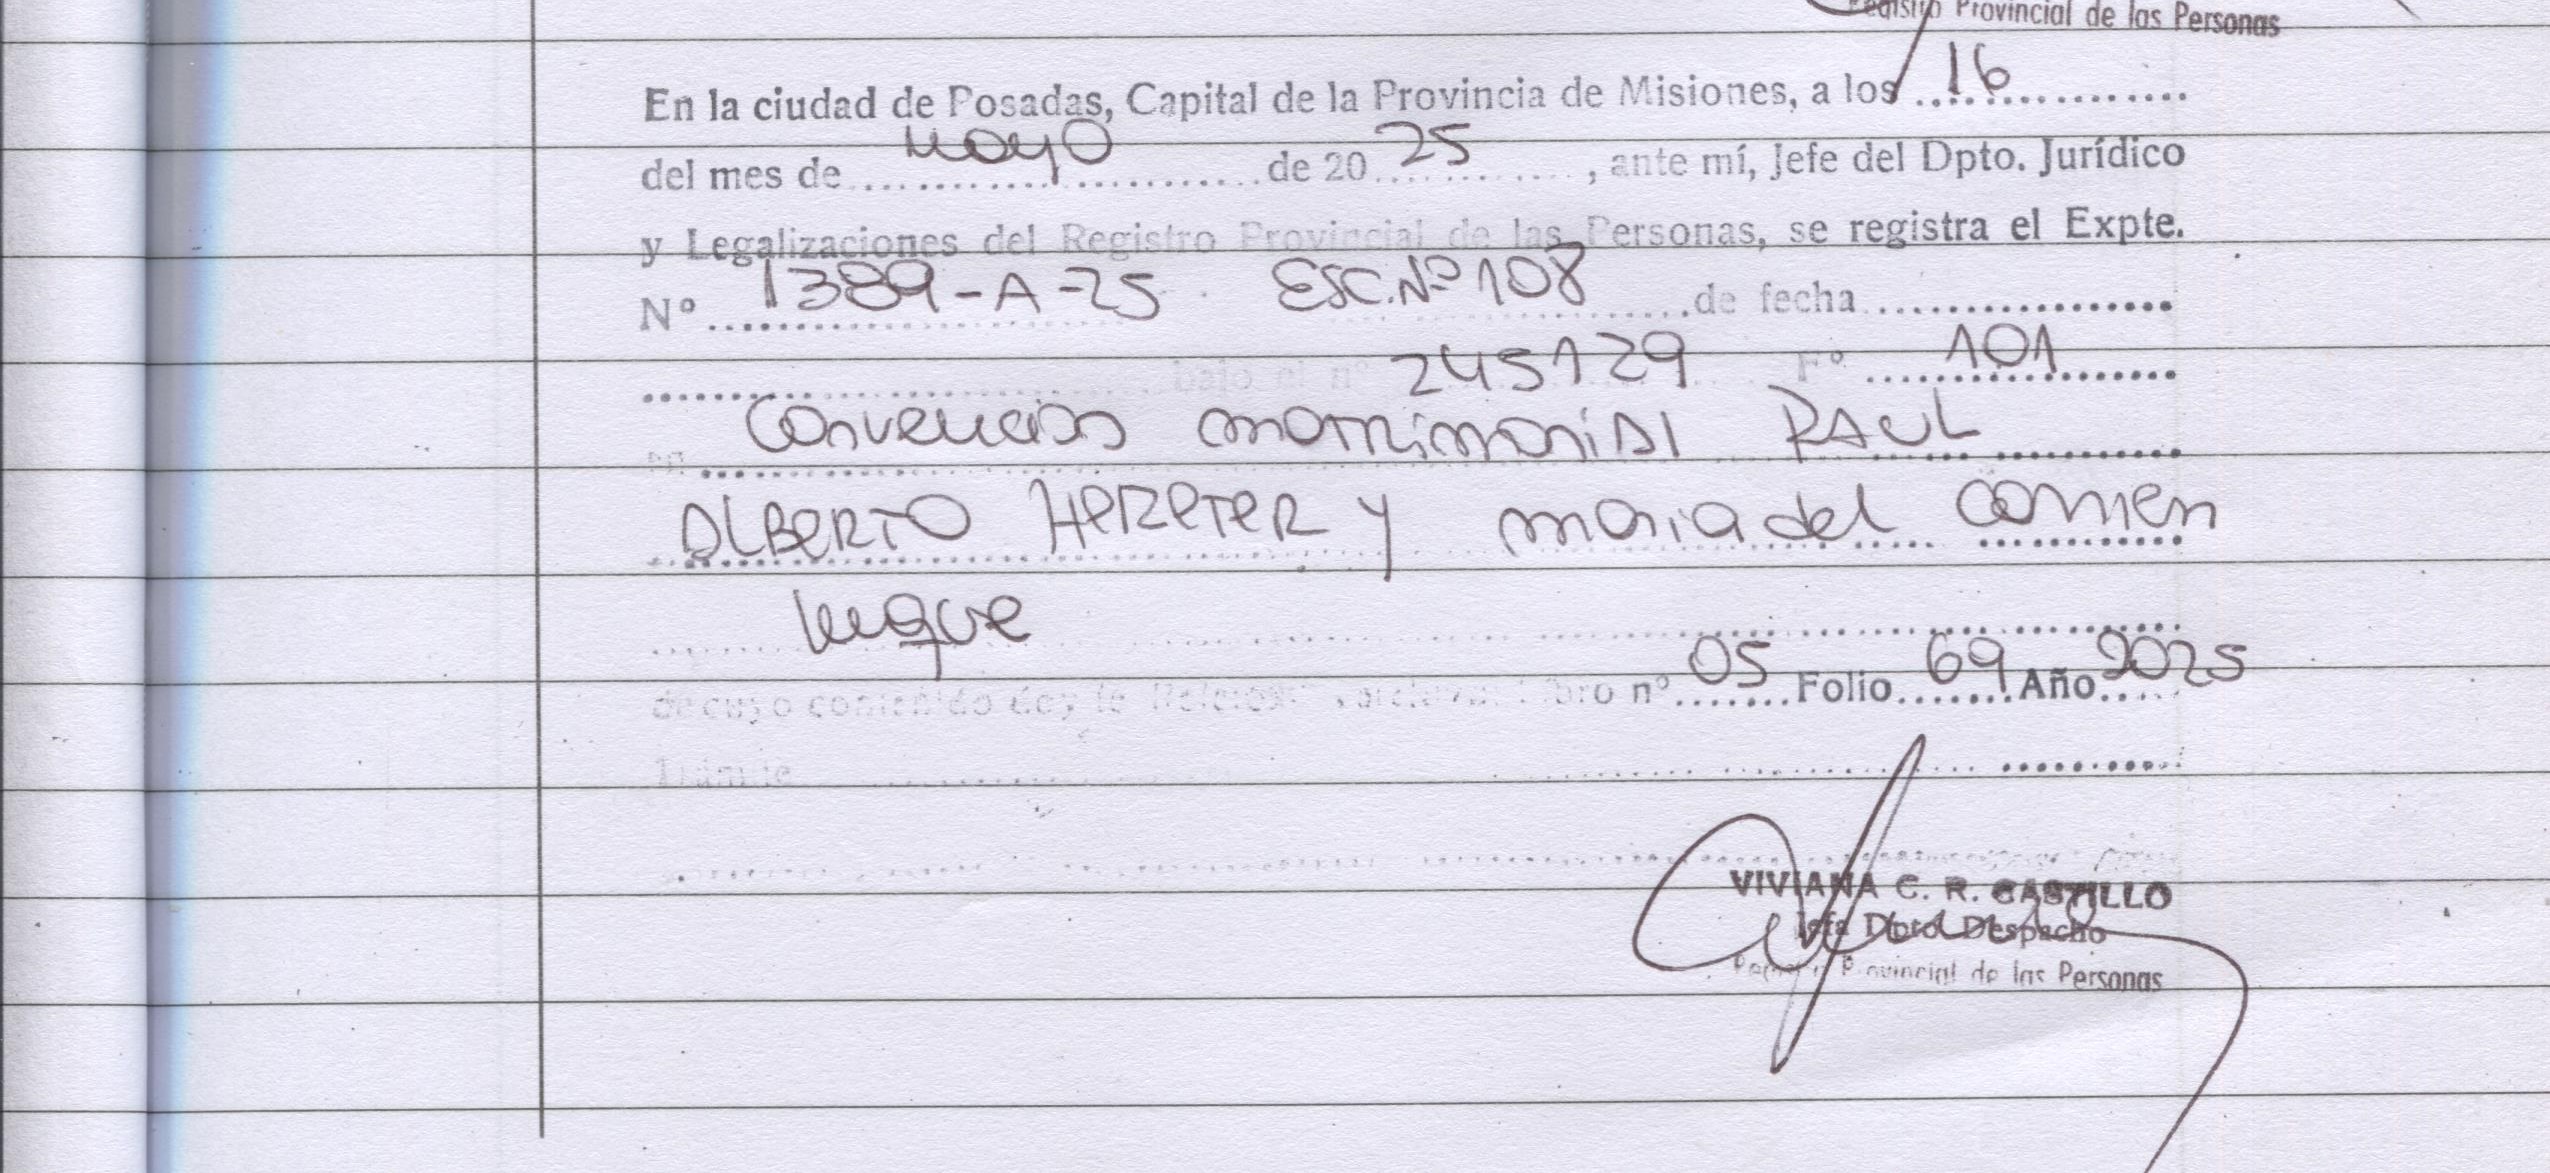 Registro Provincial de las Personas
En la ciudad de Posadas, Capital de la Provincia de Misiones, a los 16
del mes de mayo de 20 25, ante mí, Jefe del Dpto. Jurídico
y Legalizaciones del Registro Provincial de las Personas, se registra el Expte.
Nº 1389-A-25 ESC.Nº 108 de fecha
bajo el nº 245129 Fº 101
Convención matrimonial RAUL
ALBERTO HERETER y maria del carmen
luque
de cuyo contenido doy fe Libro nº 05 Folio 69 Año 2025
Trámite
VIVIANA C. R. CASTILLO
Jefa Dpto Despacho
Registro Provincial de las Personas